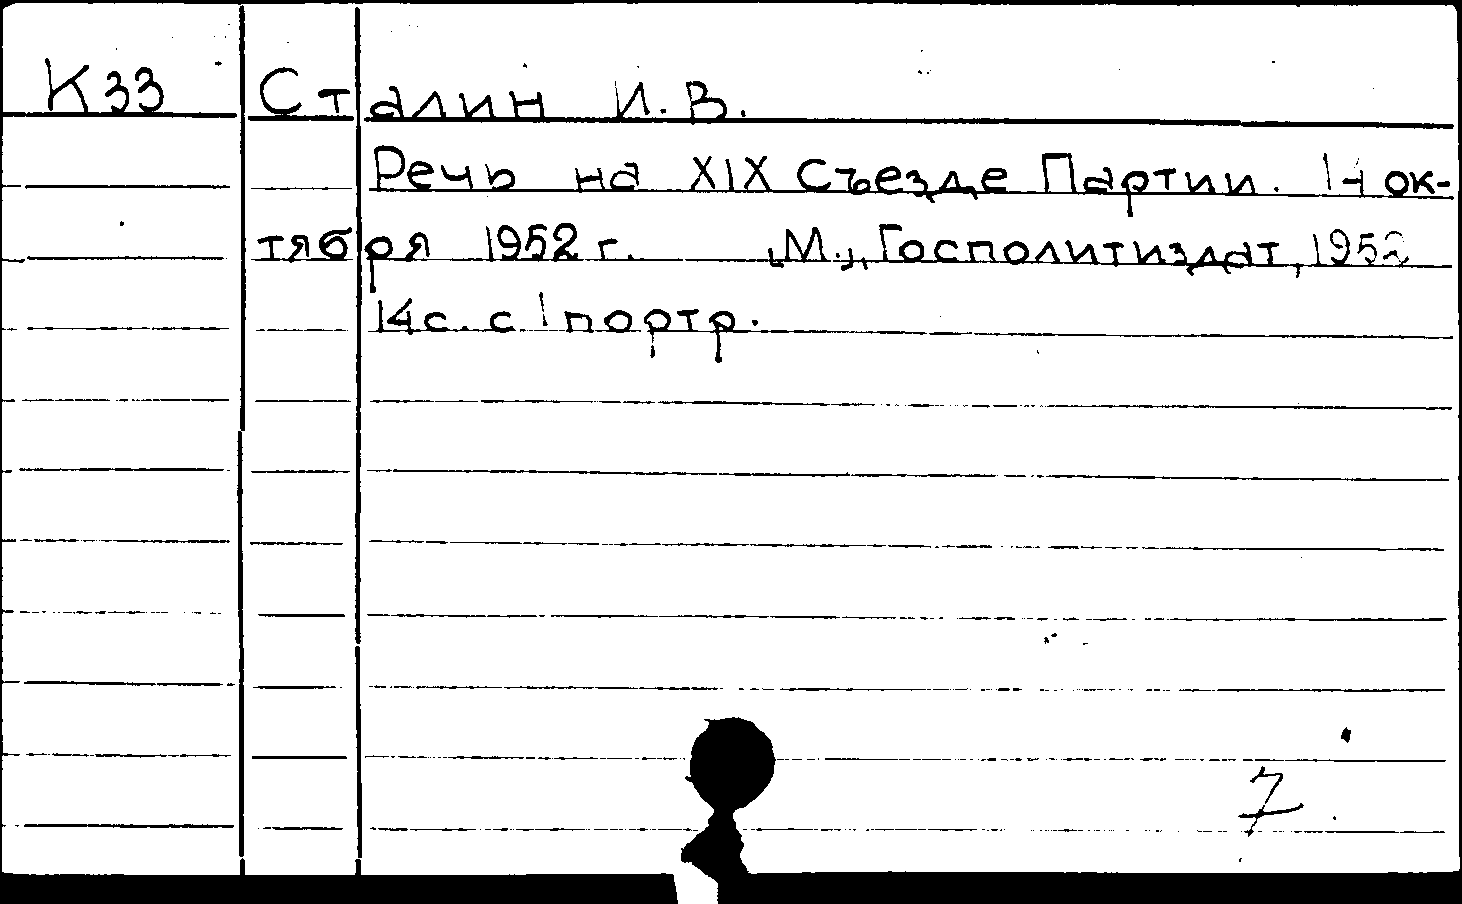 К33 Сталин И. В.
Речь на XIX Съезде Партии. 14 ок-
тября 1952 г. „М.„, Госполитиздат, 1952
14 с. с 1 портр.
7